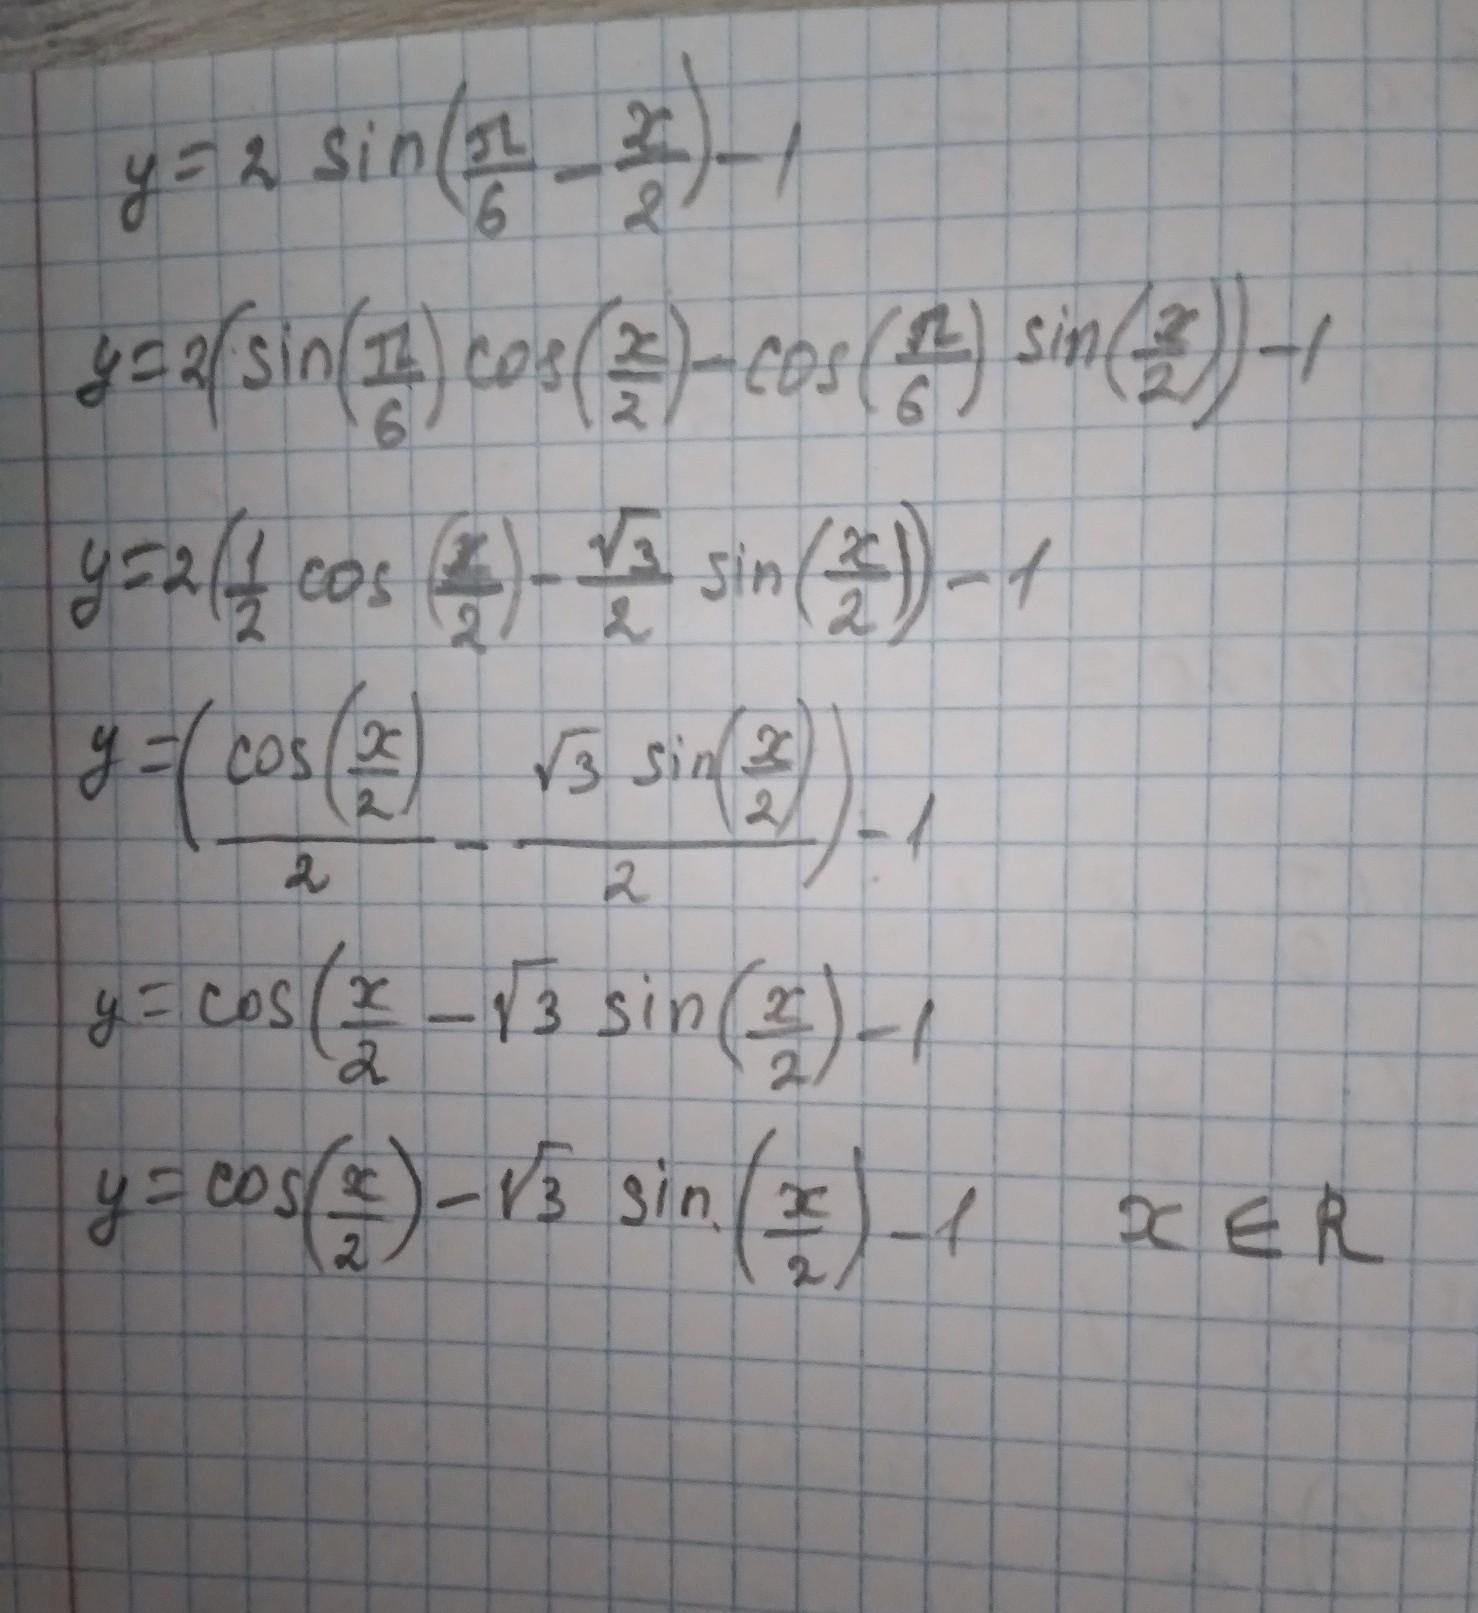 y = 2 sin(π/6 - x/2) - 1
y = 2(sin(π/6) cos(x/2) - cos(π/6) sin(x/2)) - 1
y = 2(1/2 cos (x/2) - √3/2 sin(x/2)) - 1
y = (cos(x/2)/2 - √3 sin(x/2)/2) - 1
y = cos(x/2 - √3 sin(x/2) - 1
y = cos(x/2) - √3 sin (x/2) - 1 x ∈ R